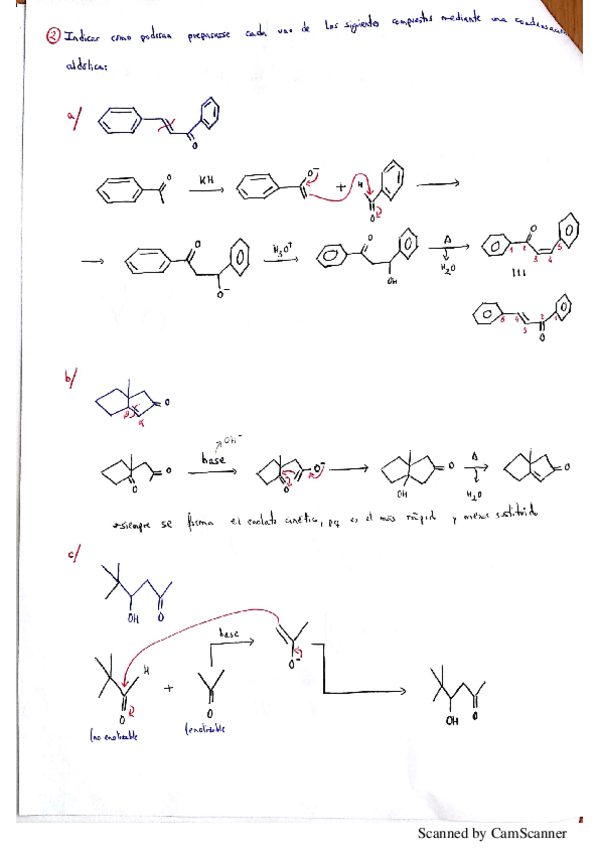 ② Indicar como podrían prepararse cada uno de los siguientes compuestos mediante una condensación
aldólica:
a/
O
O KH O⁻ + H O
O O⁻ H₃O⁺ O OH Δ H₂O O 1 2 3 4 5
III
5 4 3 2 1 O
b/
O
β α
OH⁻
O O base O O⁻ OH O Δ H₂O O
*siempre se forma el enolato cinético, pq es el más rápido y menos sustituido
c/
OH O
base
O⁻
H
O + O OH O
(no enolizable (enolizable
Scanned by CamScanner